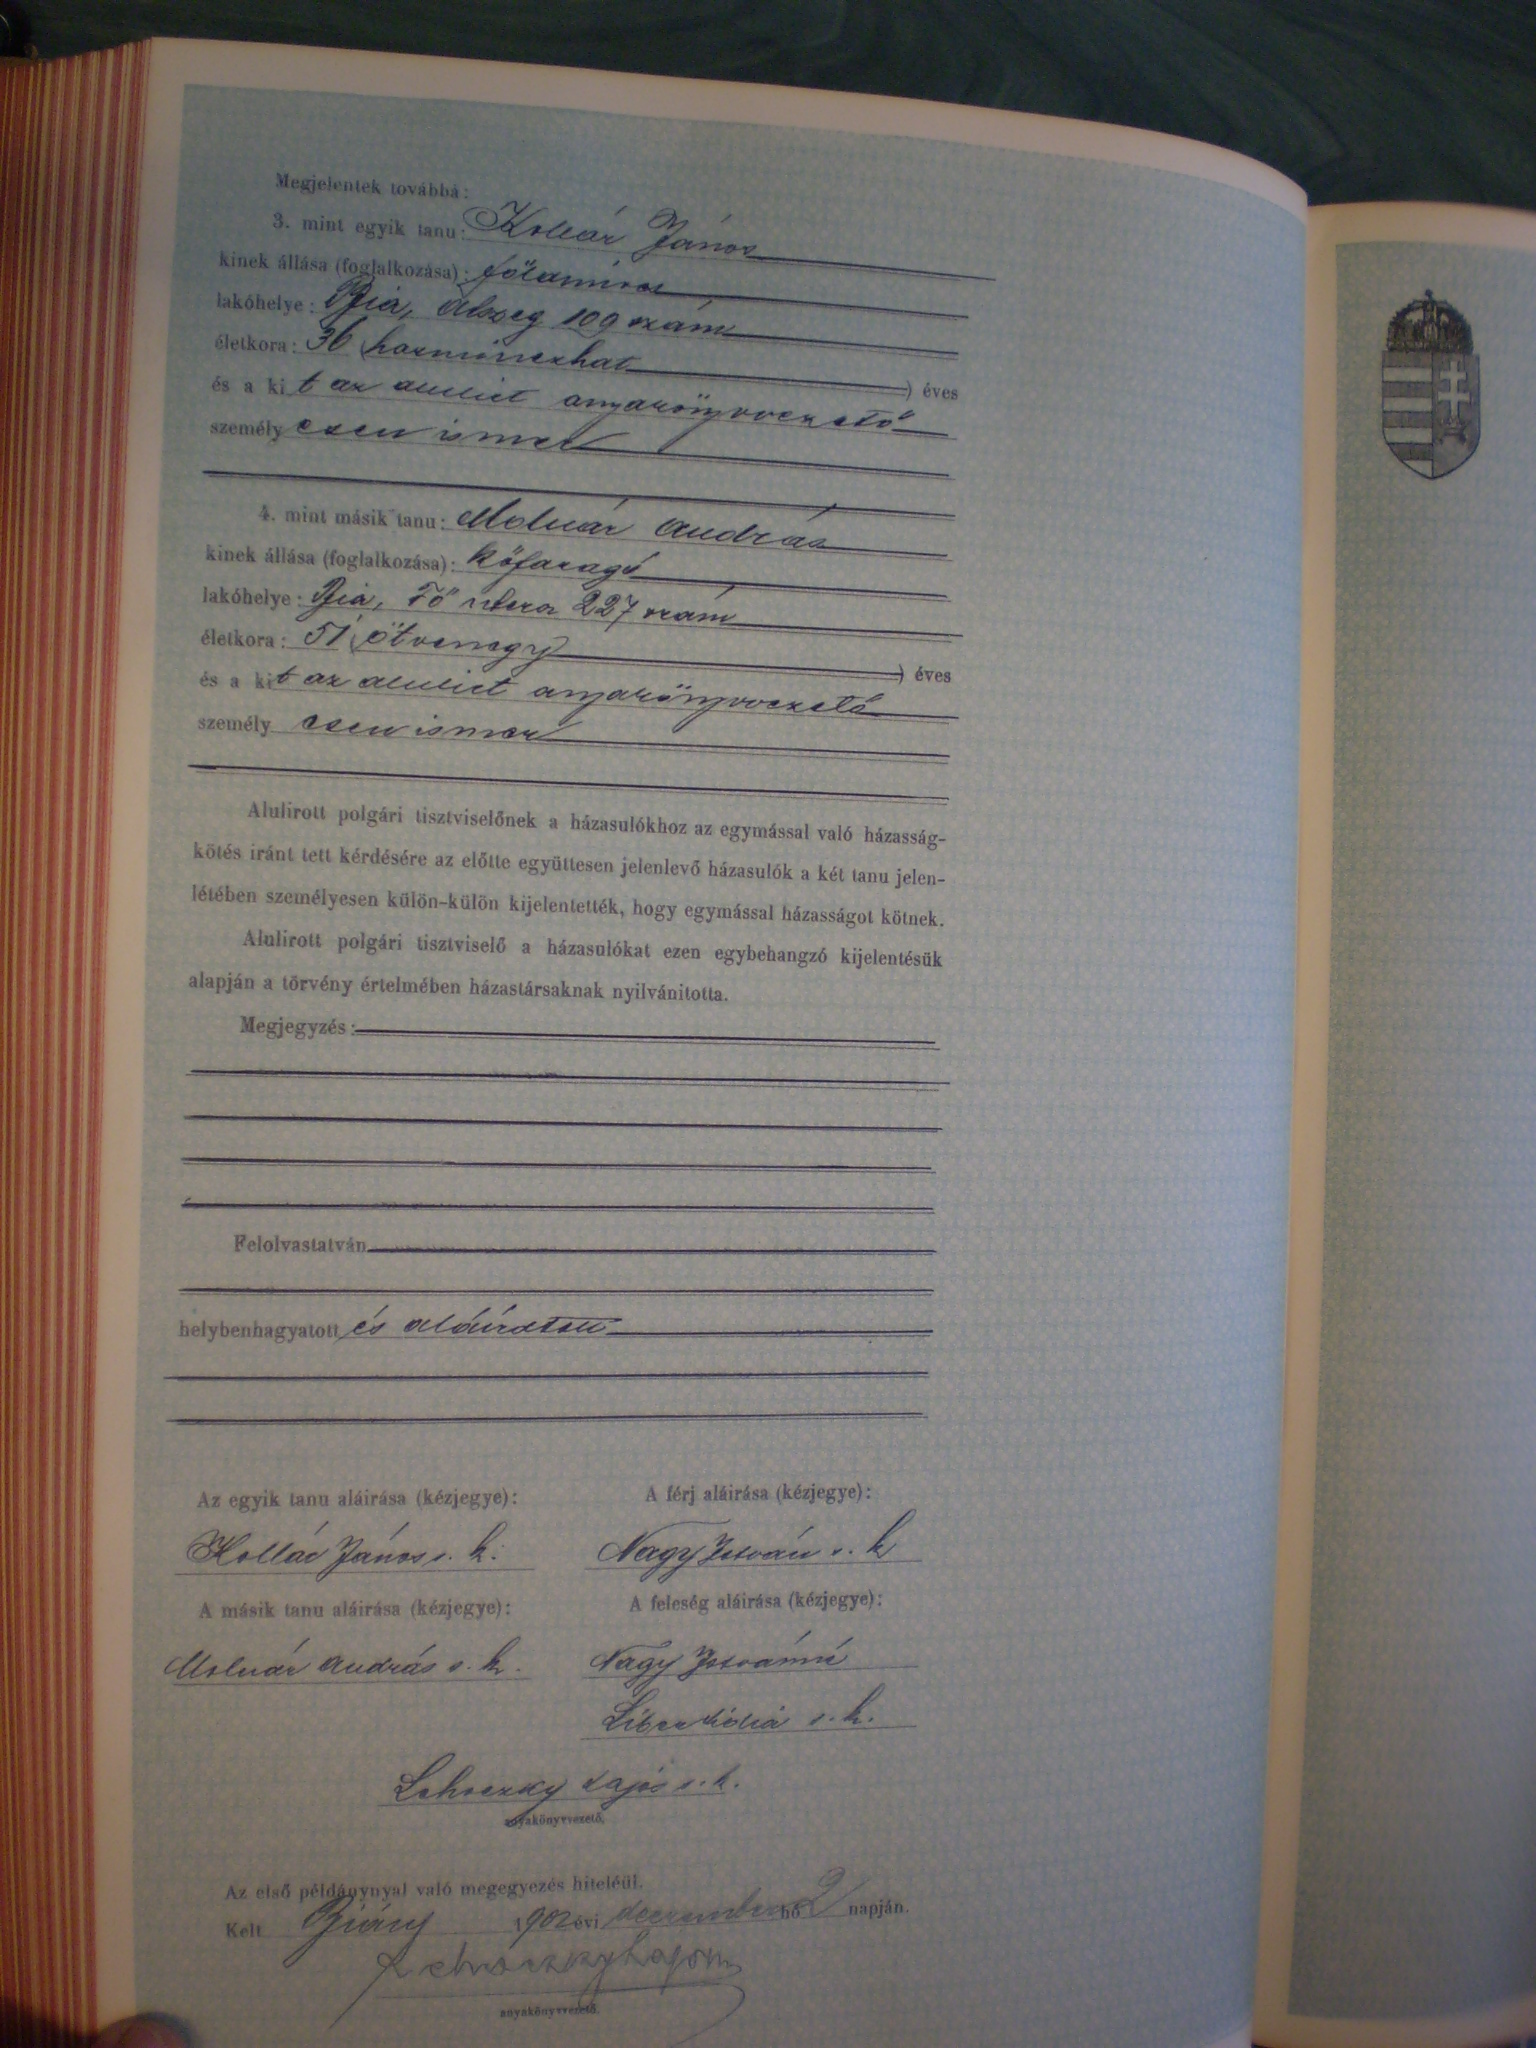 Megjelentek továbbá:
3. mint egyik tanu: Kollár János
kinek állása (foglalkozása):
lakóhelye: Bia, Alszeg 109 szám
életkora: 36 (harminczhat ) éves
és a kit az alulirt anyakönyvvezető
személyesen ismer
4. mint másik tanu: Molnár András
kinek állása (foglalkozása): kőfaragó
lakóhelye: Bia, Fő utcza 227 szám
életkora: 51 (ötvenegy ) éves
és a kit az alulirt anyakönyvvezető
személyesen ismer
Alulirott polgári tisztviselőnek a házasulókhoz az egymással való házasság-
kötés iránt tett kérdésére az előtte együttesen jelenlevő házasulók a két tanu jelen-
létében személyesen külön-külön kijelentették, hogy egymással házasságot kötnek.
Alulirott polgári tisztviselő a házasulókat ezen egybehangzó kijelentésük
alapján a törvény értelmében házastársaknak nyilvánitotta.
Megjegyzés:
Felolvastatván
helybenhagyatott és aláíratott
Az egyik tanu aláirása (kézjegye):
Kollár János s. k.
A férj aláirása (kézjegye):
Nagy István s. k
A másik tanu aláirása (kézjegye):
Molnár András s. k.
A feleség aláirása (kézjegye):
Nagy Istvánné
Lidia s. k.
Lehoczky Lajos s. k.
anyakönyvvezető.
Az első példánynyal való megegyezés hiteléül.
Kelt Bián 1902 évi deczember hó 2 napján.
Lehoczky Lajos
anyakönyvvezető.